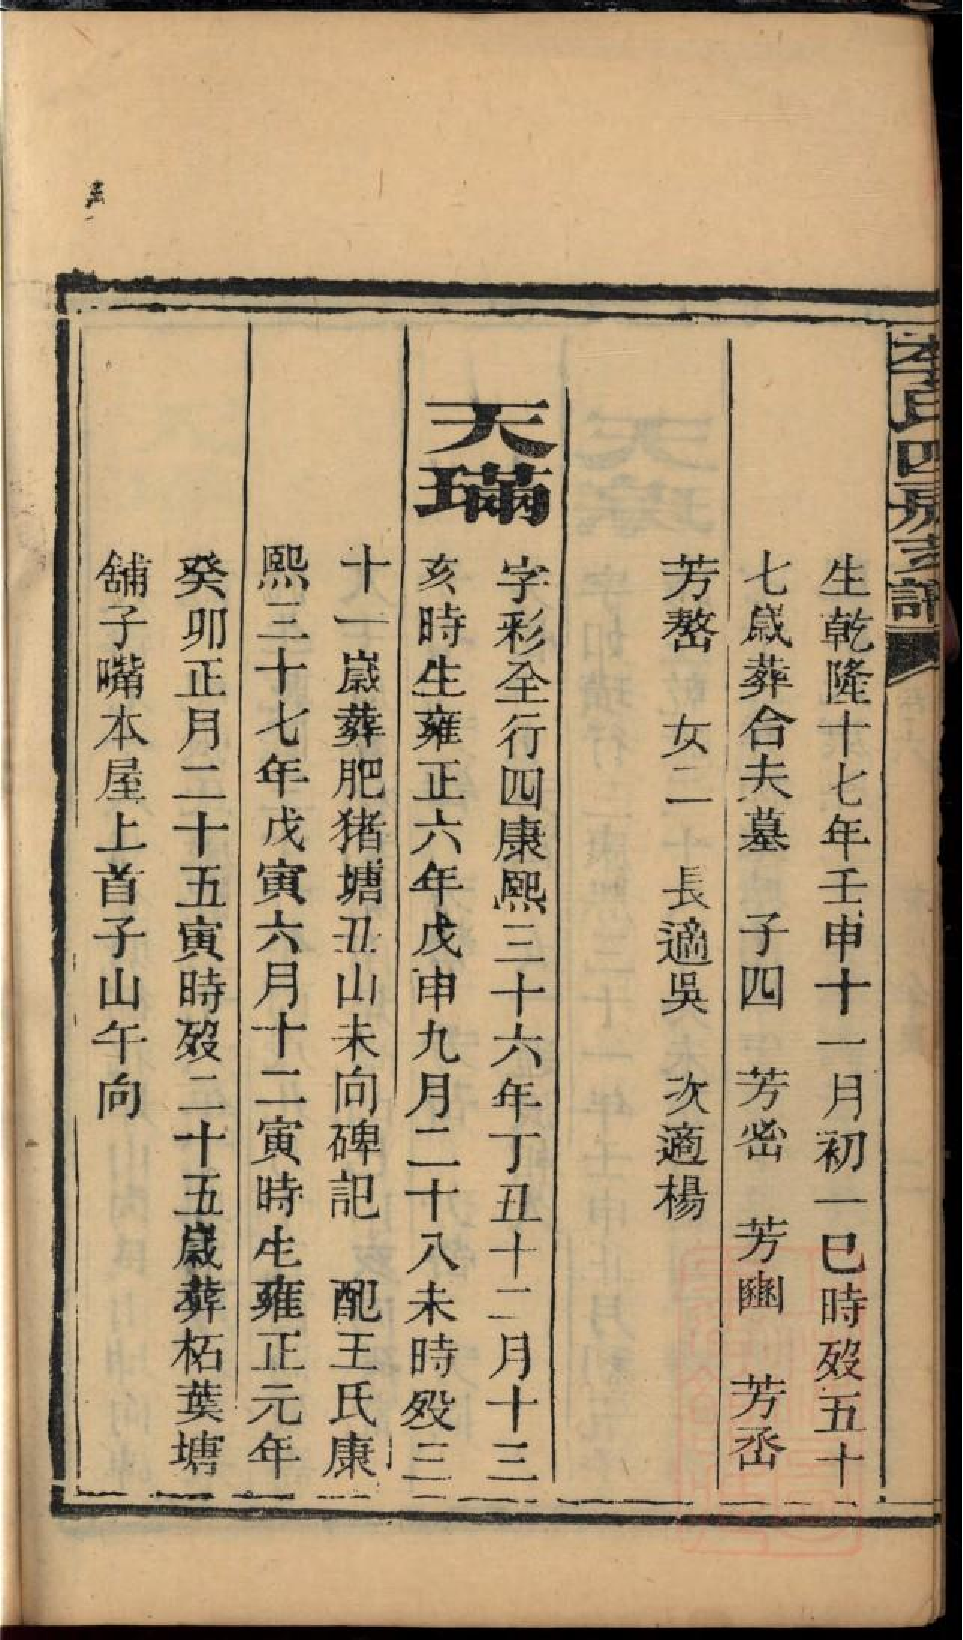 李氏四房支譜
生乾隆十七年壬申十一月初一巳時歿五十
七歲葬合夫墓 子四 芳峚 芳豳 芳丞
芳嶅 女二 長適吳 次適楊
天㻴
字彩全行四康熙三十六年丁丑十二月十三
亥時生雍正六年戊申九月二十八未時歿三
十一歲葬肥猪塘丑山未向碑記 配王氏康
熙三十七年戊寅六月十二寅時生雍正元年
癸卯正月二十五寅時歿二十五歲葬柘葉塘
舖子嘴本屋上首子山午向